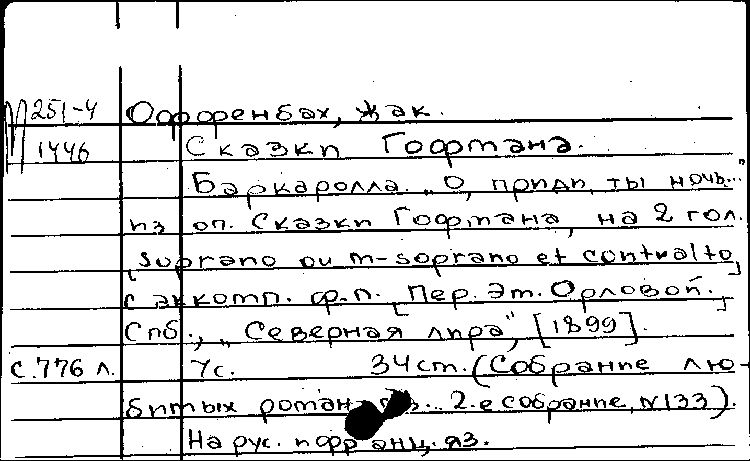 М 251-4 Оффенбах, Жак.
1446 Сказки Гофмана.
Баркаролла. „О, приди, ты ночь..."
из оп. Сказки Гофмана, на 2 гол.
[soprano ou m-soprano et contralto]
с аккомп. ф.-п. [Пер. Эт. Орловой.]
Спб., „Северная лира", [1899].
с. 776 л. 7с. 34 cm. (Собрание лю-
битых роман ... 2-е собрание, N133).
На рус. и франц. яз.